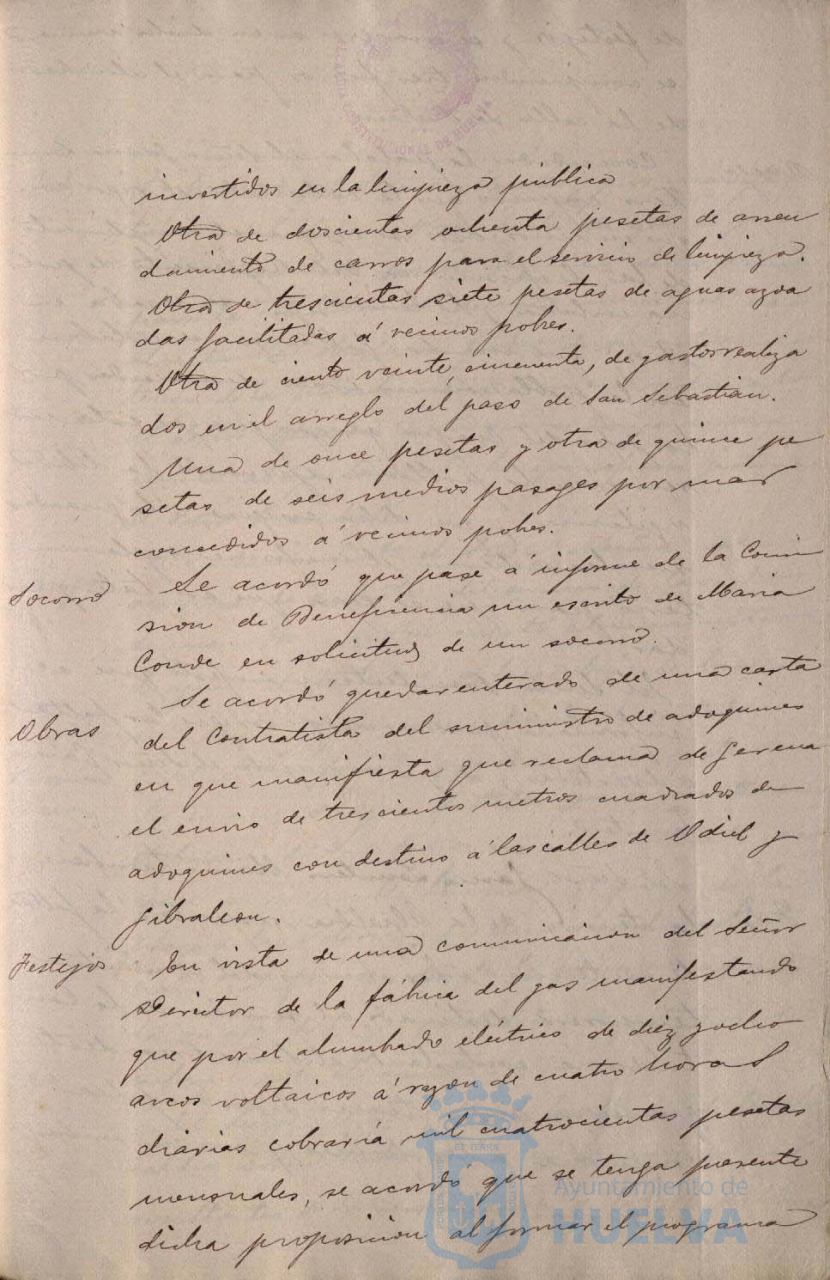 invertidos en la limpieza publica
Otra de doscientas ochenta pesetas de arren
damiento de carros para el servicio de limpieza.
Otra de trescientas siete pesetas de aguas azoa
das facilitadas á vecinos pobres.
Otra de ciento veinte, cincuenta, de gastos realiza
dos en el arreglo del paso de San Sebastian.
Una de once pesetas y otra de quince pe
setas de seis medios pasages por mar
concedidos á vecinos pobres.
Socorro
Se acordó que pase á informe de la Comi
sion de Beneficencia un escrito de Maria
Conde en solicitud de un socorro.
Obras
Se acordó quedar enterado de una carta
del Contratista del suministro de adoquines
en que manifiesta que reclama de Gerena
el envio de trescientos metros cuadrados de
adoquines con destino á las calles de Odiel y
Gibraleon.
Festejos
En vista de una comunicacion del Señor
Director de la fábrica del gas manifestando
que por el alumbrado eléctrico de diez y ocho
arcos voltaicos á razon de cuatro horas
diarias cobraría mil cuatrocientas pesetas
mensuales, se acordó que se tenga presente
dicha proposicion al formar el programa
Ayuntamiento de
HUELVA